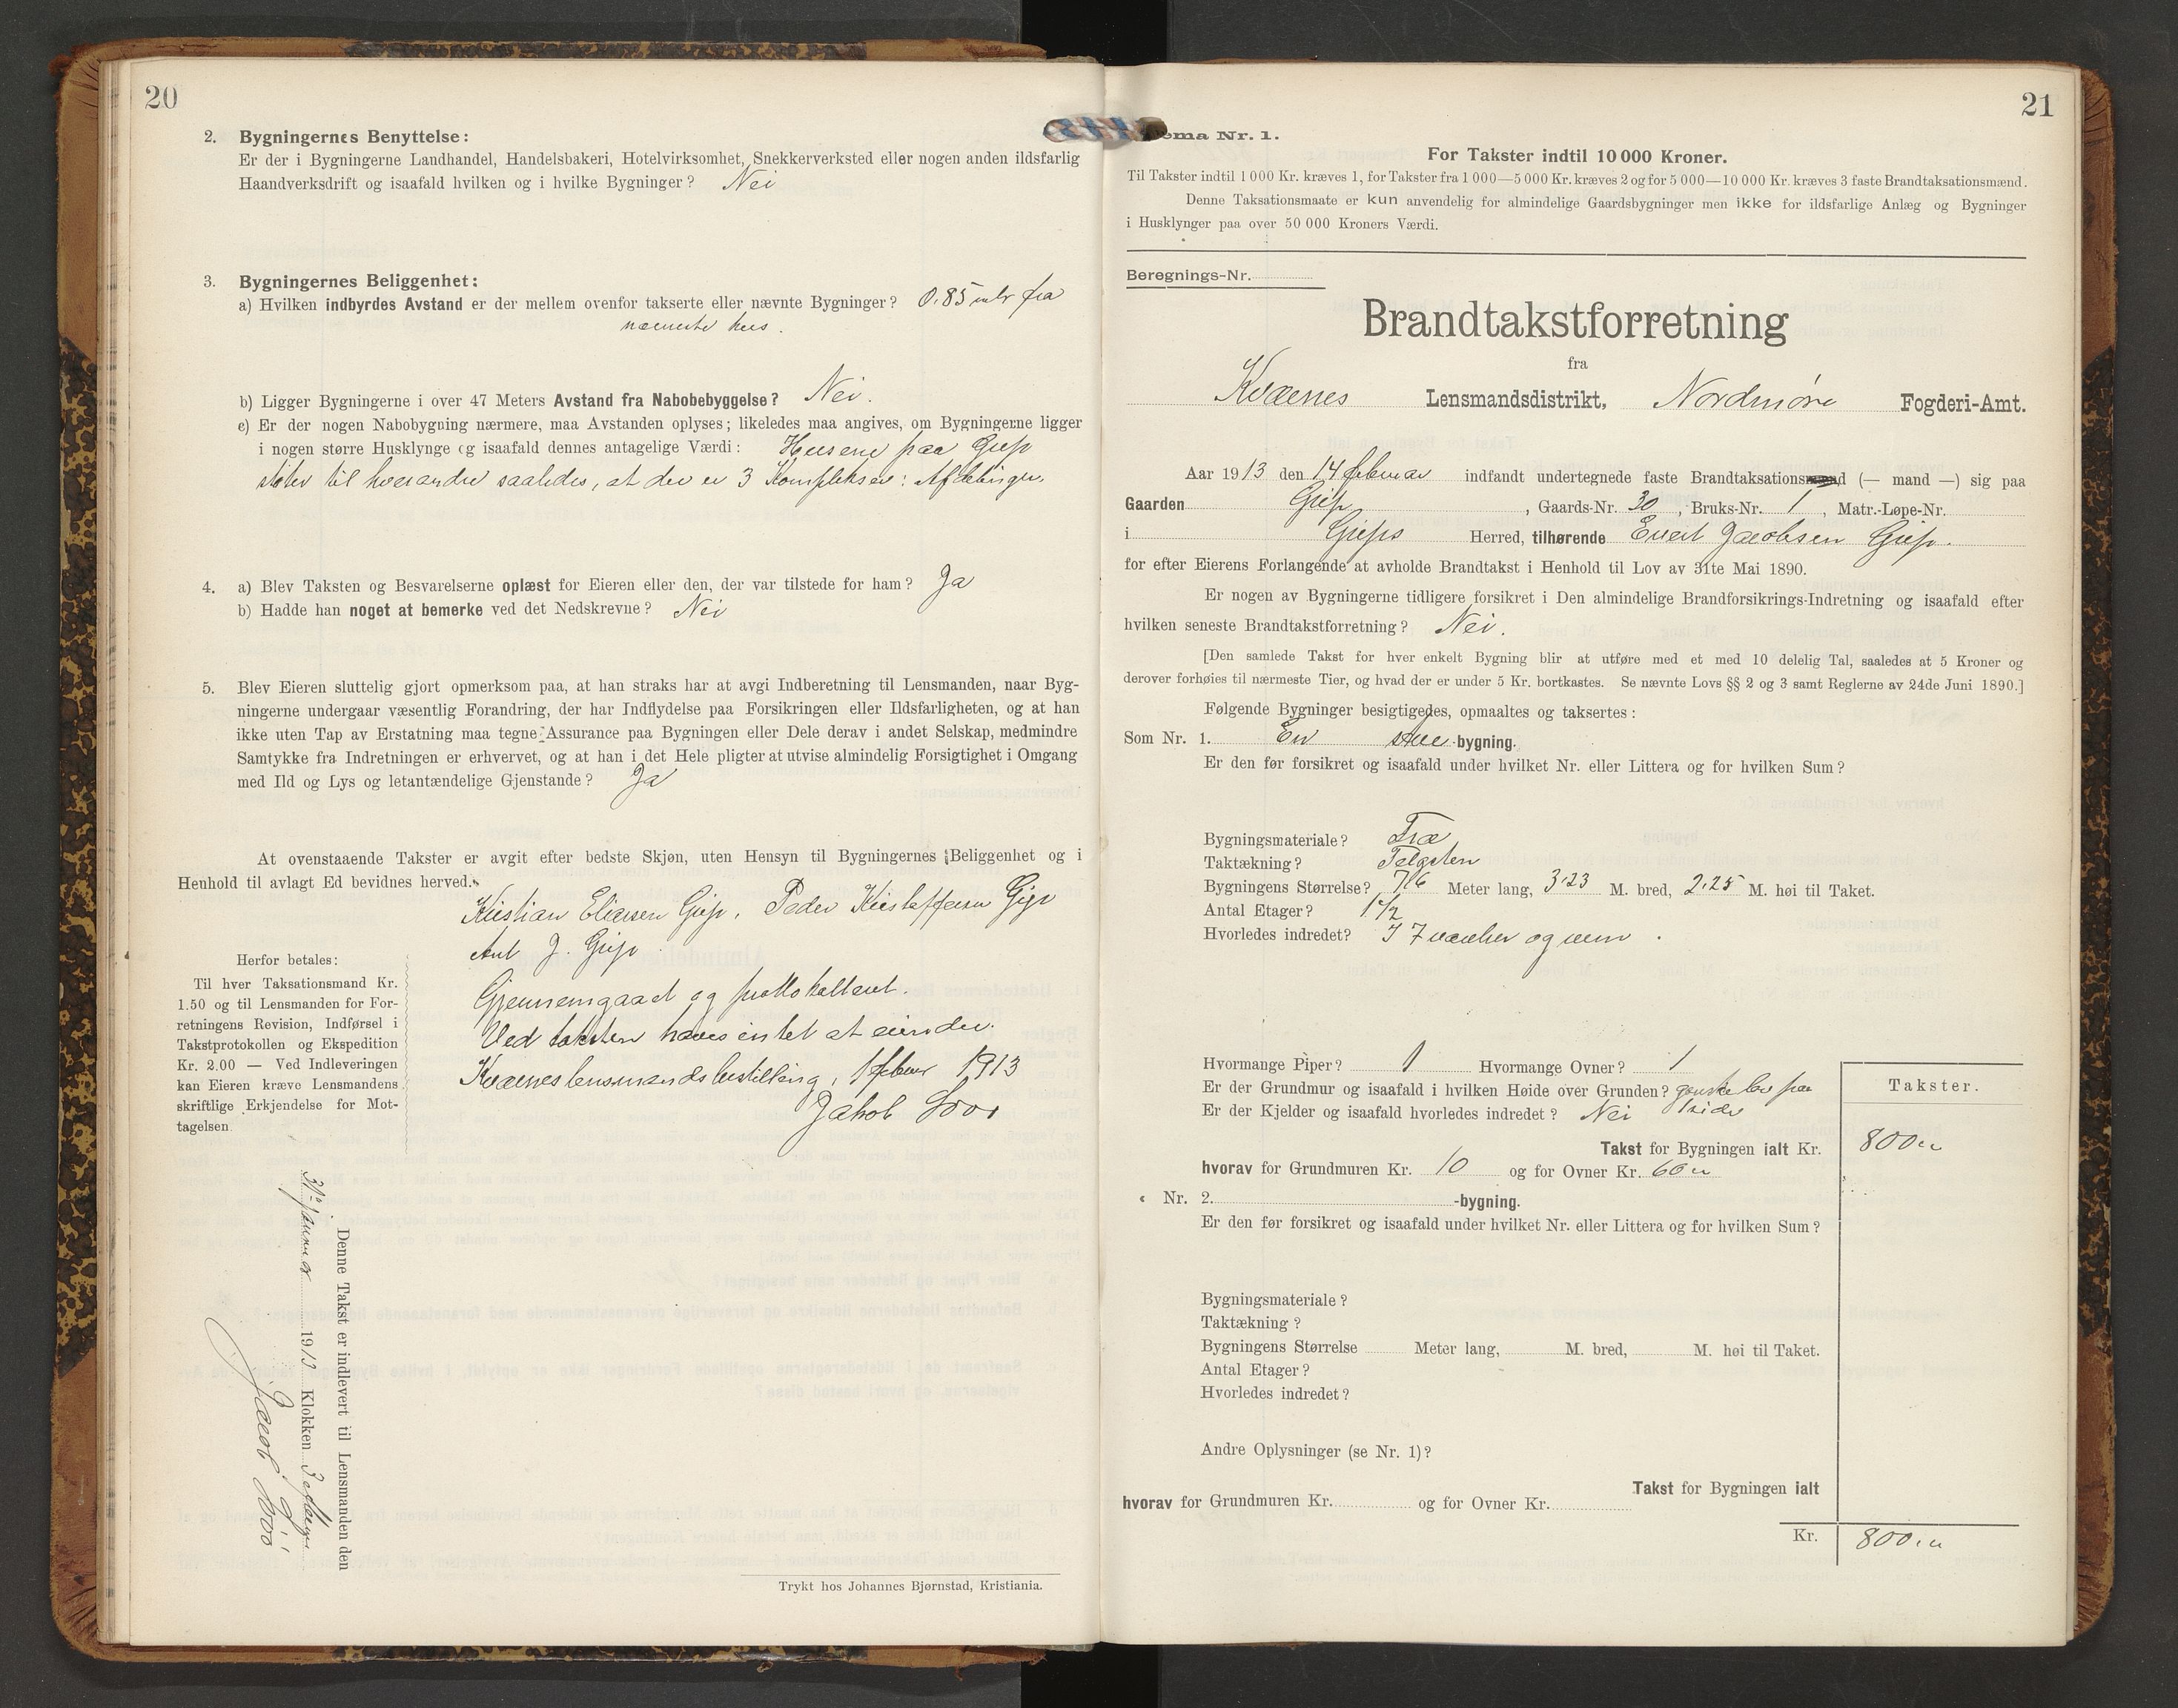 20
2. Bygningernes Benyttelse:
Er der i Bygningerne Landhandel, Handelsbakeri, Hotelvirksomhet, Snekkerverksted eller nogen anden ildsfarlig
Haandverksdrift og isaafald hvilken og i hvilke Bygninger? Nei
3. Bygningernes Beliggenhet:
a) Hvilken indbyrdes Avstand er der mellem ovenfor takserte eller nævnte Bygninger? 0.85 mtr fra
næmeste hus.
b) Ligger Bygningerne i over 47 Meters Avstand fra Nabobebyggelse? Nei.
c) Er der nogen Nabobygning nærmere, maa Avstanden oplyses; likeledes maa angives, om Bygningerne ligger
i nogen større Husklynge og isaafald dennes antagelige Værdi: Husene paa Grip
støter til hverandre saaledes, at der er 3 Komplekser: Afdelinger.
4. a) Blev Taksten og Besvarelserne oplæst for Eieren eller den, der var tilstede for ham? Ja
b) Hadde han noget at bemerke ved det Nedskrevne? Nei
5. Blev Eieren sluttelig gjort opmerksom paa, at han straks har at avgi Indberetning til Lensmanden, naar Byg-
ningerne undergaar væsentlig Forandring, der har Indflydelse paa Forsikringen eller Ildsfarligheten, og at han
ikke uten Tap av Erstatning maa tegne Assurance paa Bygningen eller Dele derav i andet Selskap, medmindre
Samtykke fra Indretningen er erhvervet, og at han i det Hele pligter at utvise almindelig Forsigtighet i Omgang
med Ild og Lys og letantændelige Gjenstande? Ja
At ovenstaaende Takster er avgit efter bedste Skjøn, uten Hensyn til Bygningernes Beliggenhet og i
Henhold til avlagt Ed bevidnes herved.
Kristian Eliasen Grip, Peder Kristoffersen Grip
Ant J. Grip
Gjennemgaaet og protokolleret.
Ved taksten haves intet at erindre.
Kværnes lensmandsbestilling, 1 febuar 1913
Jakob Soot
Herfor betales:
Til hver Taksationsmand Kr.
1.50 og til Lensmanden for For-
retningens Revision, Indførsel i
Takstprotokollen og Ekspedition
Kr. 2.00 — Ved Indleveringen
kan Eieren kræve Lensmandens
skriftlige Erkjendelse for Mot-
tagelsen.
Denne Takst er indlevert til Lensmanden den
31 januar 1913 Klokken
Jacob Soot
Trykt hos Johannes Bjørnstad, Kristiania.
21
ema Nr. 1.
For Takster indtil 10 000 Kroner.
Til Takster indtil 1 000 Kr. kræves 1, for Takster fra 1 000—5 000 Kr. kræves 2 og for 5 000—10 000 Kr. kræves 3 faste Brandtaksationsmænd.
Denne Taksationsmaate er kun anvendelig for almindelige Gaardsbygninger men ikke for ildsfarlige Anlæg og Bygninger
i Husklynger paa over 50 000 Kroners Værdi.
Beregnings-Nr.
Brandtakstforretning
fra
Kværnes Lensmandsdistrikt, Nordmøre Fogderi-Amt.
Aar 1913 den 14 februar indfandt undertegnede faste Brandtaksationsmænd (— mand —) sig paa
Gaarden Grip, Gaards-Nr. 30, Bruks-Nr. 1, Matr.-Løpe-Nr.
i Grips Herred, tilhørende Evert Jacobsen Grip.
for efter Eierens Forlangende at avholde Brandtakst i Henhold til Lov av 31te Mai 1890.
Er nogen av Bygningerne tidligere forsikret i Den almindelige Brandforsikrings-Indretning og isaafald efter
hvilken seneste Brandtakstforretning? Nei.
[Den samlede Takst for hver enkelt Bygning blir at utføre med et med 10 delelig Tal, saaledes at 5 Kroner og
derover forhøies til nærmeste Tier, og hvad der er under 5 Kr. bortkastes. Se nævnte Lovs §§ 2 og 3 samt Reglerne av 24de Juni 1890.]
Følgende Bygninger besigtigedes, opmaaltes og taksertes:
Som Nr. 1. En stue-bygning.
Er den før forsikret og isaafald under hvilket Nr. eller Littera og for hvilken Sum?
Bygningsmateriale? Træ
Taktækning? Telgsten
Bygningens Størrelse? 7.16 Meter lang, 3.23 M. bred, 2.25 M. høi til Taket.
Antal Etager? 1 1/2
Hvorledes indredet? I 7 værelser og rum.
Hvormange Piper? 1 Hvormange Ovner? 1
Er der Grundmur og isaafald i hvilken Høide over Grunden? ganske lav paa
1 side
Er der Kjelder og isaafald hvorledes indredet? Nei
Takster.
Takst for Bygningen ialt Kr. 800 "
hvorav for Grundmuren Kr. 10 og for Ovner Kr. 60 "
Nr. 2. -bygning.
Er den før forsikret og isaafald under hvilket Nr. eller Littera og for hvilken Sum?
Bygningsmateriale?
Taktækning?
Bygningens Størrelse Meter lang, M. bred, M. høi til Taket.
Antal Etager?
Hvorledes indredet?
Andre Oplysninger (se Nr. 1)?
Takst for Bygningen ialt
hvorav for Grundmuren Kr. og for Ovner Kr.
Kr. 800."